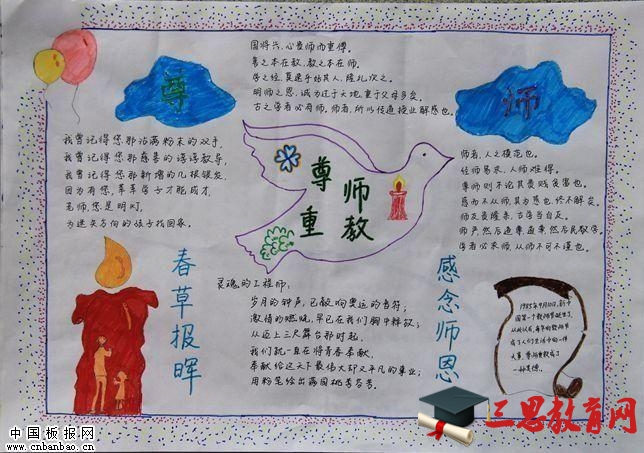 国将兴，心贵师而重傅。
善之本在教，教之本在师。
学之经，莫速乎好其人，隆礼次之。
明师之恩，诚为过于天地，重于父母多矣。
古之学者必有师。师者，所以传道授业解惑也。
尊
师
我曾记得您那沾满粉末的双手，
我曾记得您那慈善的谆谆教导，
我曾记得您那新增的几根银发，
因为有您，莘莘学子才能成才，
老师，您是明灯，
为迷失方向的孩子找回家。
尊师
重教
师者，人之模范也。
经师易求，人师难得。
尊师则不论其贵贱贫富也。
师严然后道尊，道尊然后民敬学。
学者必求师，从师不可不谨也。
春草报晖
灵魂的工程师：
岁月的钟声，已敲响奥运的音符；
激情的燃烧，早已在我们胸中释放；
从迈上三尺舞台那时起，
我们就一直在将青春奉献，
奉献给这天下最伟大却又平凡的事业；
用粉笔绘出满园桃李芬芳。
感念师恩
1985年9月10日，新中
国第一个教师节诞生了，
从此以后，每年的教师节
成了人们生活中的一件
大事，尊师重教成了
一种美德。
中国板报网
www.cnbanbao.cn
三思教育网